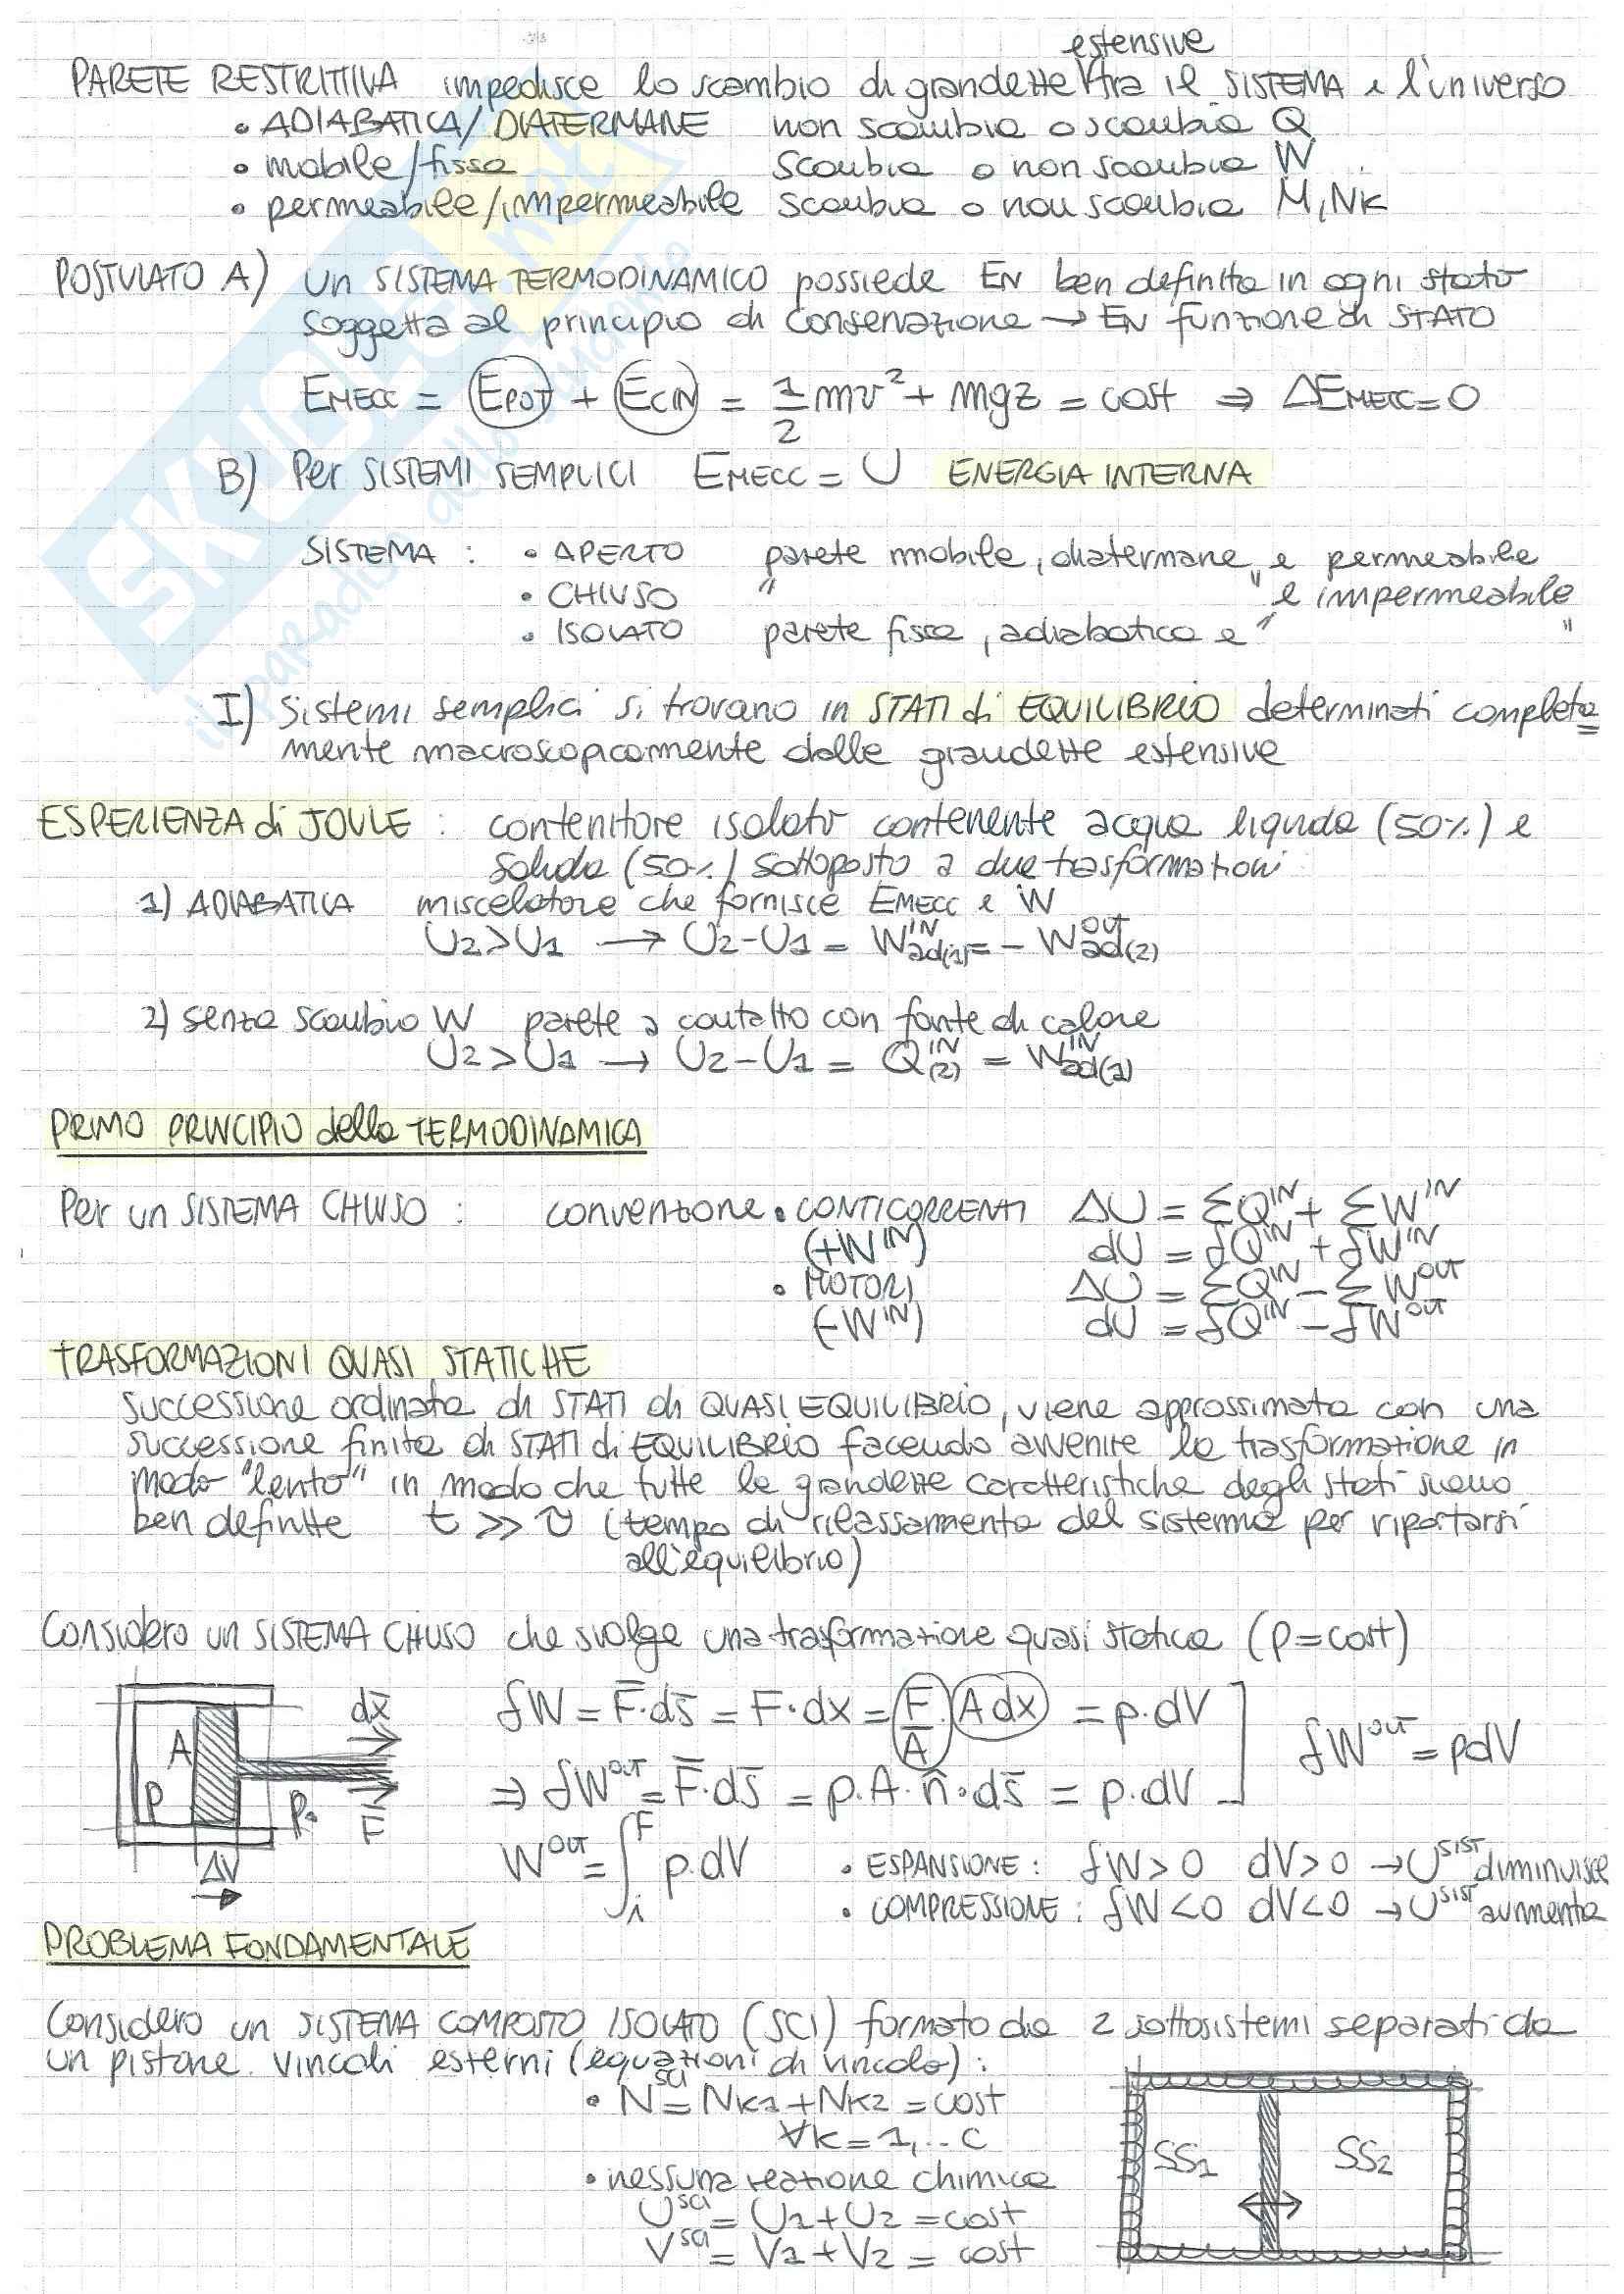 estensive
PARETE RESTRITTIVA impedisce lo scambio di grandezze tra il SISTEMA e l'universo
• ADIABATICA/DIATERMANE non scambia o scambia Q
• mobile/fissa scambia o non scambia W
• permeabile/impermeabile scambia o non scambia M, NK
POSTULATO A) Un SISTEMA TERMODINAMICO possiede EN ben definita in ogni stato
soggetta al principio di conservazione → EN funzione di STATO
EMECC = EPOT + ECIN = 1/2 mv² + mgz = cost ⇒ ΔEMECC = 0
B) Per SISTEMI SEMPLICI EMECC = U ENERGIA INTERNA
SISTEMA : • APERTO parete mobile, diatermane e permeabile
• CHIUSO " " e impermeabile
• ISOLATO parete fissa, adiabatica e " "
I) Sistemi semplici si trovano in STATI di EQUILIBRIO determinati completa=
mente macroscopicamente dalle grandezze estensive
ESPERIENZA di JOULE : contenitore isolato contenente acqua liquida (50%) e
solida (50%) sottoposto a due trasformazioni
1) ADIABATICA miscelatore che fornisce EMECC e W
U2 > U1 → U2 - U1 = W^IN ad(1) = - W^OUT ad(2)
2) senza scambio W parete a contatto con fonte di calore
U2 > U1 → U2 - U1 = Q^IN (2) = W^IN ad(1)
PRIMO PRINCIPIO della TERMODINAMICA
Per un SISTEMA CHIUSO : convenzione • CONTICORRENTI ΔU = ΣQ^IN + ΣW^IN
(+W^IN) dU = δQ^IN + δW^IN
• MOTORI ΔU = ΣQ^IN - ΣW^OUT
(-W^IN) dU = δQ^IN - δW^OUT
TRASFORMAZIONI QUASI STATICHE
successione ordinata di STATI di QUASI EQUILIBRIO, viene approssimata con una
successione finita di STATI di EQUILIBRIO facendo avvenire la trasformazione in
modo "lento" in modo che tutte le grandezze caratteristiche degli stati siano
ben definite t >> τ (tempo di rilassamento del sistema per riportarsi
all'equilibrio)
Considero un SISTEMA CHIUSO che svolge una trasformazione quasi statica (p=cost)
δW = F̄·ds̄ = F·dx = (F/A)·(A dx) = p·dV
δW^OUT = pdV
⇒ δW^OUT = F̄·ds̄ = p·A·n̂·ds̄ = p·dV
dx̄
A
P
P.
F̄
ΔV
W^OUT = ∫_i^F p·dV • ESPANSIONE : δW>0 dV>0 → U^SIST diminuisce
• COMPRESSIONE : δW<0 dV<0 → U^SIST aumenta
PROBLEMA FONDAMENTALE
Considero un SISTEMA COMPOSTO ISOLATO (SCI) formato da 2 sottosistemi separati da
un pistone. Vincoli esterni (equazioni di vincolo) :
• N^SCI = NK1 + NK2 = cost
∀K = 1,.. C
• nessuna reazione chimica
U^SCI = U1 + U2 = cost
V^SCI = V1 + V2 = cost
SS1 SS2
SKUOLA.net
il paradiso dello studente